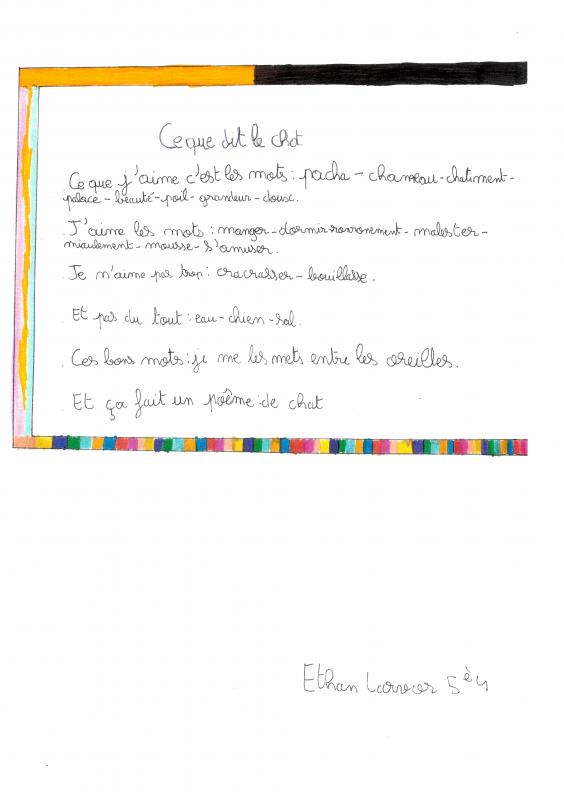 Ce que dit le chat
Ce que j'aime c'est les mots : pacha - chameau - chatiment -
palace - beauté - poil - grandeur - doux.
J'aime les mots : manger - dormir - ronronement - malester -
miaulement - mousse - s'amuser.
Je n'aime pas trop : cracrasser - bouillasse.
Et pas du tout : eau - chien - sal.
Ces bons mots : je me les mets entre les oreilles.
Et ça fait un poême : de chat
Ethan 5è4